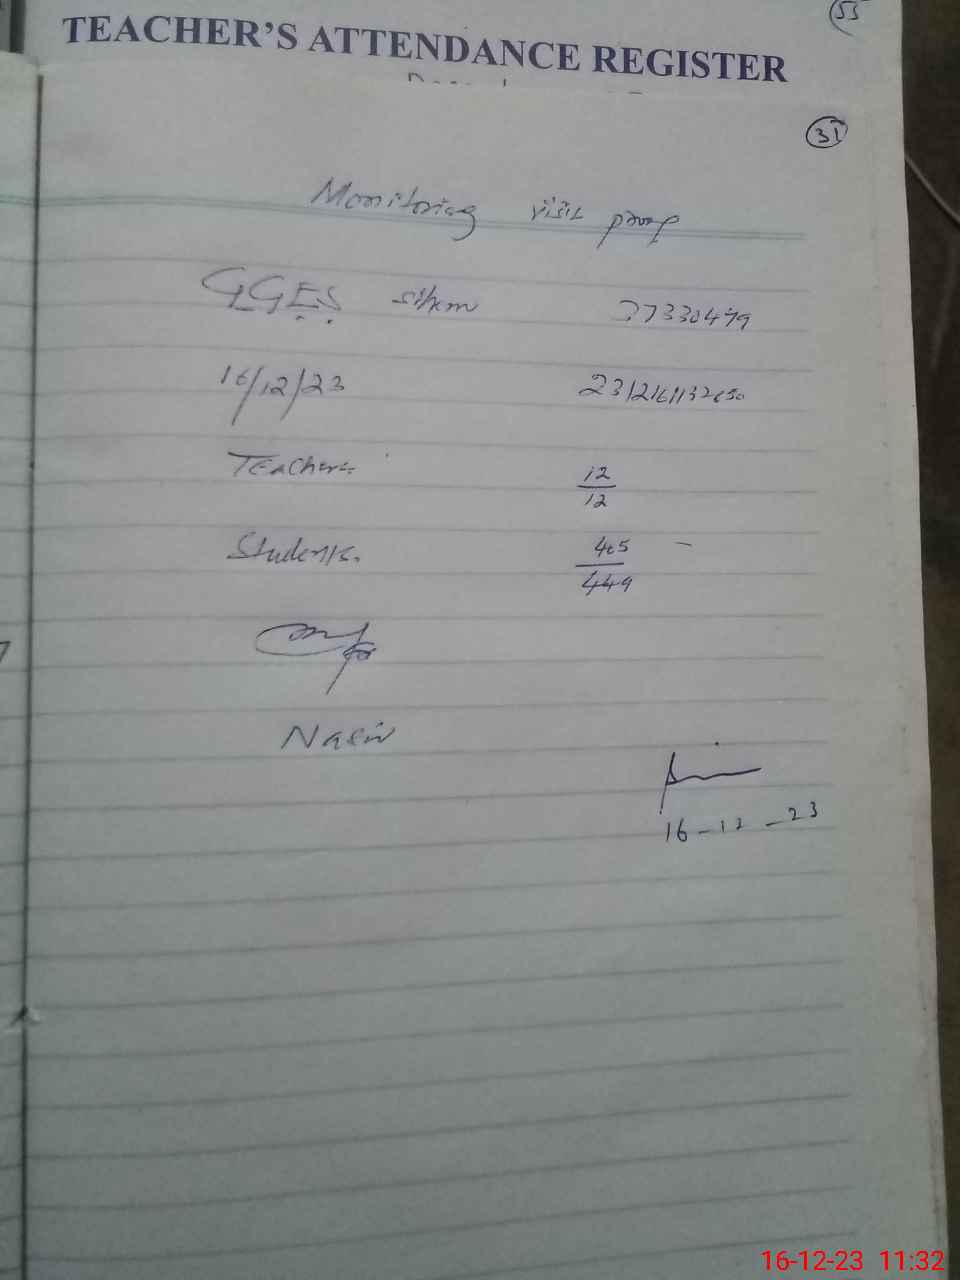 55
TEACHER'S ATTENDANCE REGISTER
31
Monitoring visit proof
GGES 37330479
16/12/23
Teachers 12/12
Students. 405/449 -
Nasir
16-12-23
16-12-23 11:32